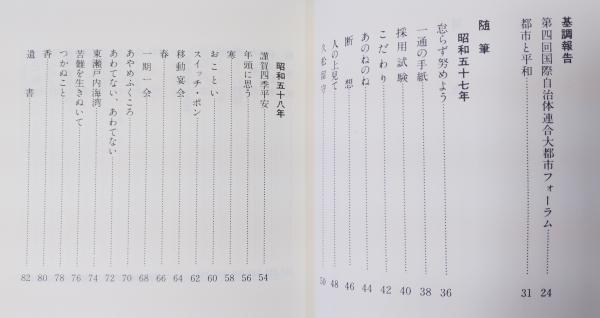 基調報告
第四回国際自治体連合大都市フォーラム……24
都市と平和……31
随筆
昭和五十七年
怠らず努めよう……36
一通の手紙……38
採用試験……40
こだわり……42
あのねのね……44
断想……46
人の上見て……48
久松留守……50
昭和五十八年
謹賀四季平安……54
年頭に思う……56
寒……58
おことい……60
スイッチ・ポン……62
移動宴会……64
春……66
一期一会……68
あやめふくころ……70
あわてない、あわてない……72
東瀬戸内海湾……74
苦難を生きぬいて……76
つかぬこと……78
香……80
遺書……82